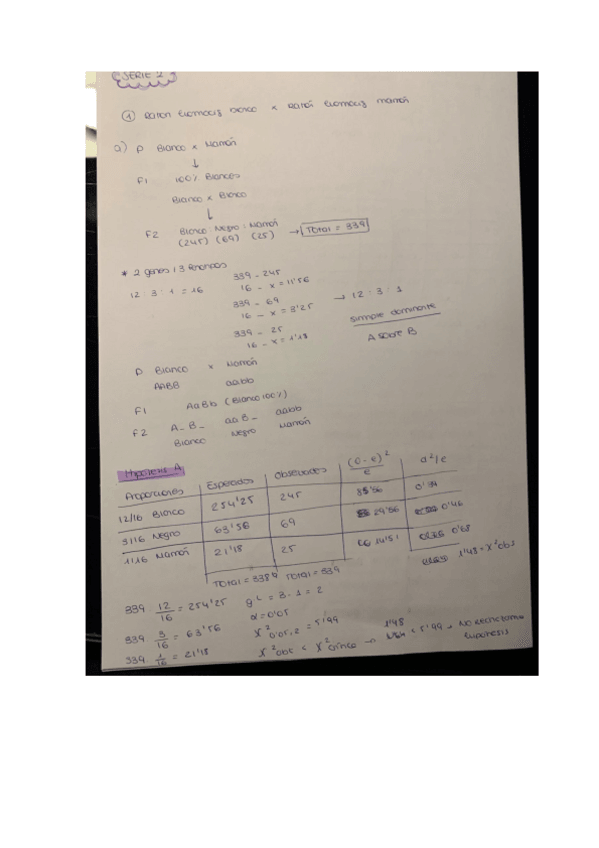 SERIE 2
① Ratón homocig blanco x Ratón homocig marrón
a) P Blanco x Marrón
↓
F1 100% Blancos
Blanco x Blanco
↓
F2 Blanco Negro : Marrón
(245) (69) (25) → Total = 339
* 2 genes / 3 fenotipos
12 : 3 : 1 = 16
339 - 245
16 - x = 11'56
339 - 69
16 - x = 3'25
339 - 25
16 - x = 1'18
→ 12 : 3 : 1
simple dominante
A sobre B
P Blanco x Marrón
AABB aabb
F1 AaBb (Blanco 100%)
F2 A_B_ aaB_ aabb
Blanco Negro Marrón
Hipótesis A
Proporciones Esperados Observados (o-e)²/e d²/e
12/16 Blanco 254'25 245 85'56
3/16 Negro 63'56 69 29'56 0'46
1/16 Marrón 21'18 25 0'68
Total = 339 1'48 = X² obs
339 · 12/16 = 254'25 g·l = 3 - 1 = 2
α = 0'05
339 · 3/16 = 63'56 X² 0'05,2 = 5'99
339 · 1/16 = 21'18 X² obs < X² crítico → 1'48 < 5'99 → No rechazamos hipótesis